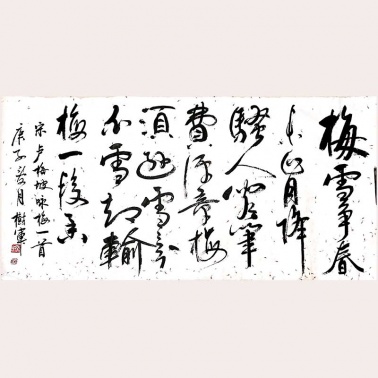 梅雪争春
未肯降
騷人阁筆
費评章梅
須逊雪三分
白雪却輸
梅一段香
宋卢梅坡咏梅一首
庚子月樹軍